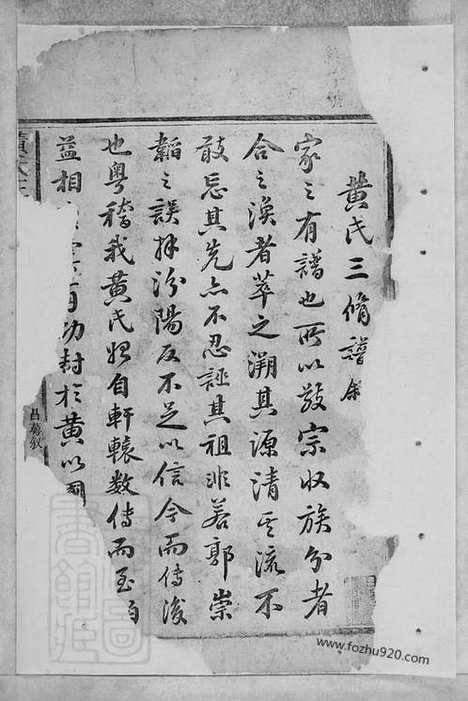 黄氏三脩譜叙
家之有譜也所以敬宗收族分者
合之渙者萃之溯其源清其流不
敢忘其先亦不忍誣其祖非若郭崇
韜之誤拜汾陽反不足以信今而傳後
也粤稽我黄氏始自軒轅数傳而至伯
益相
有功封於黄以國
昌蒭叙
www.fozhu920.com